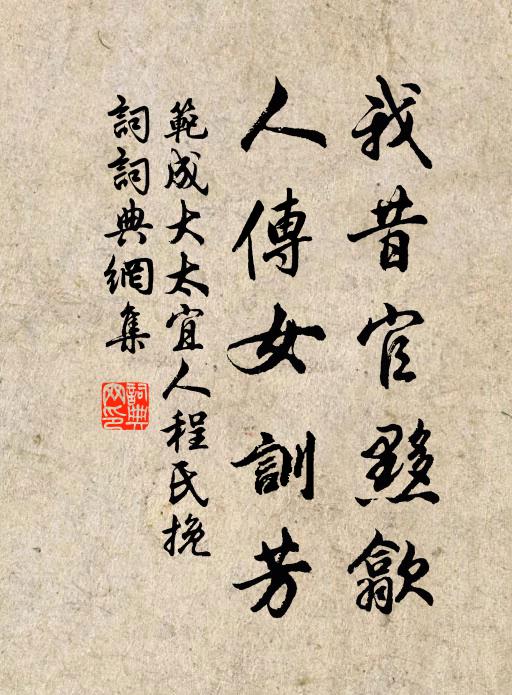 我昔官黟歙
人傳女訓芳
範成大太宜人程氏挽
詞詞典網集
詞典網印